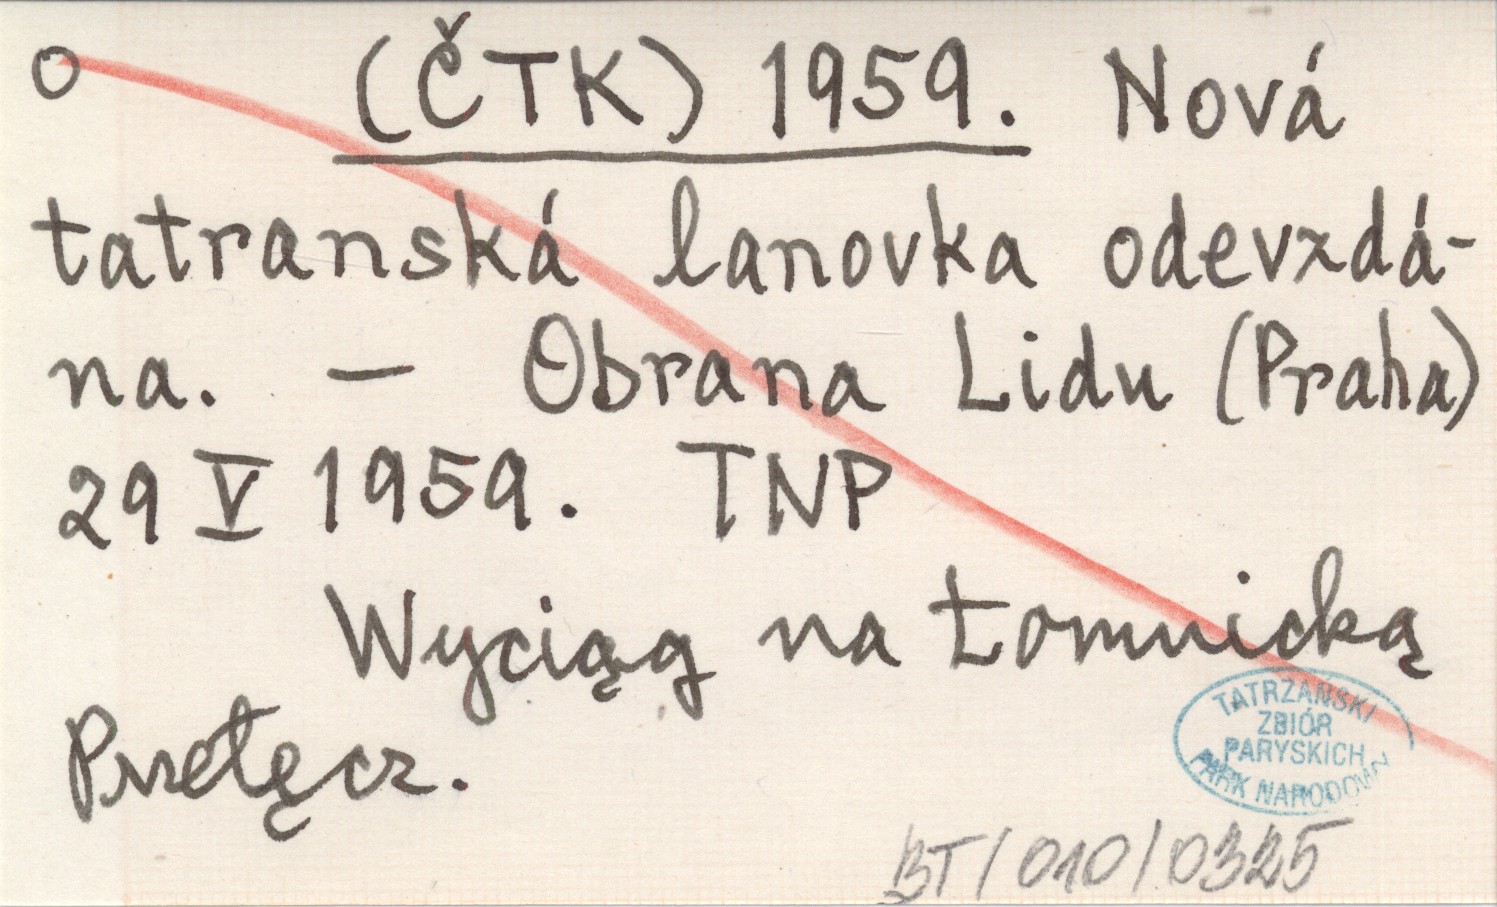 o (ČTK) 1959. Nová
tatranská lanovka odevzdá-
na. — Obrana Lidu (Praha)
29 V 1959. TNP
Wyciąg na Łomnicką
Przełęcz.
TATRZAŃSKI
ZBIÓR
PARYSKICH
PARK NARODOWY
BT/010/0325